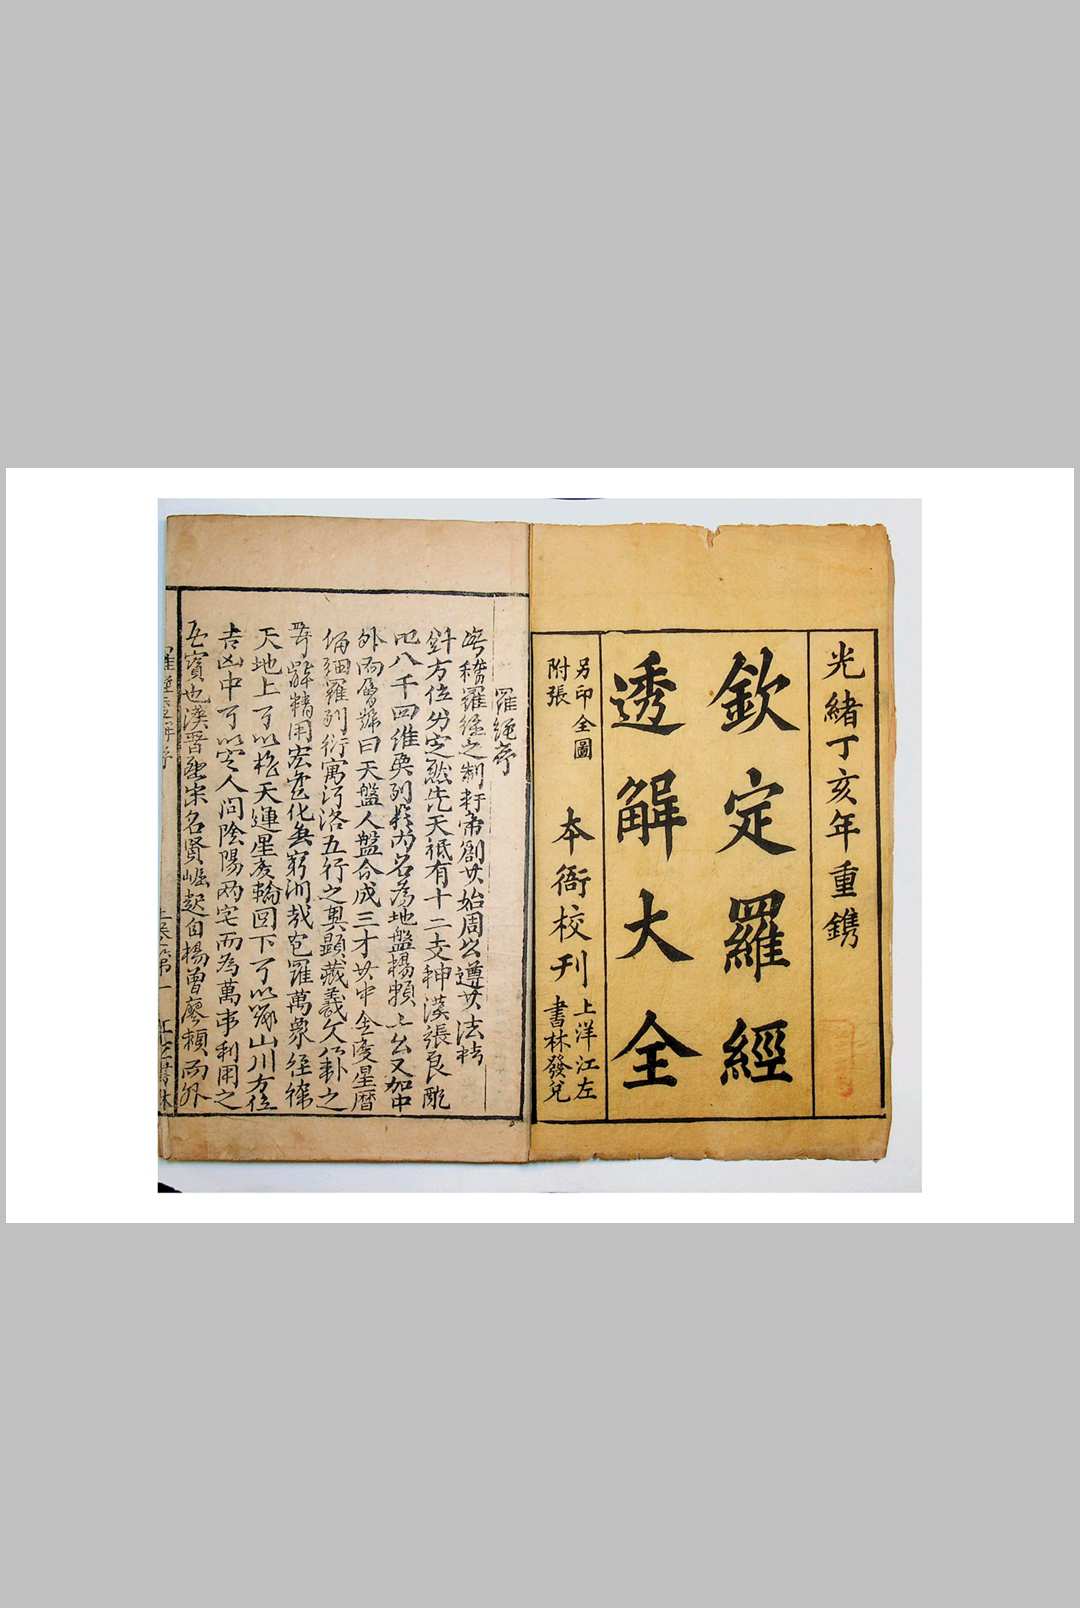 光緒丁亥年重鐫
欽定羅經
透解大全
另印全圖
附張
本衙校刊
上洋江左
書林發兌
羅經序
稽羅經之制軒帝創其始周公遵其法指
針方位分定然先天祗有十二支神漢張良配
以八干四維與列於內名為地盤楊賴二公又加中
外兩層號曰天盤人盤合成三才其中金度星曆
備細羅列衍寓河洛五行之奧顯藏羲文八卦之
解精用宏變化無窮洵哉包羅萬象經緯
天地上可以 天運星度輪回下可以 山川方位
吉凶中可以定人間陰陽兩宅而為萬事利用之
至寶也漢晋唐宋名賢崛起自楊曾廖賴而外